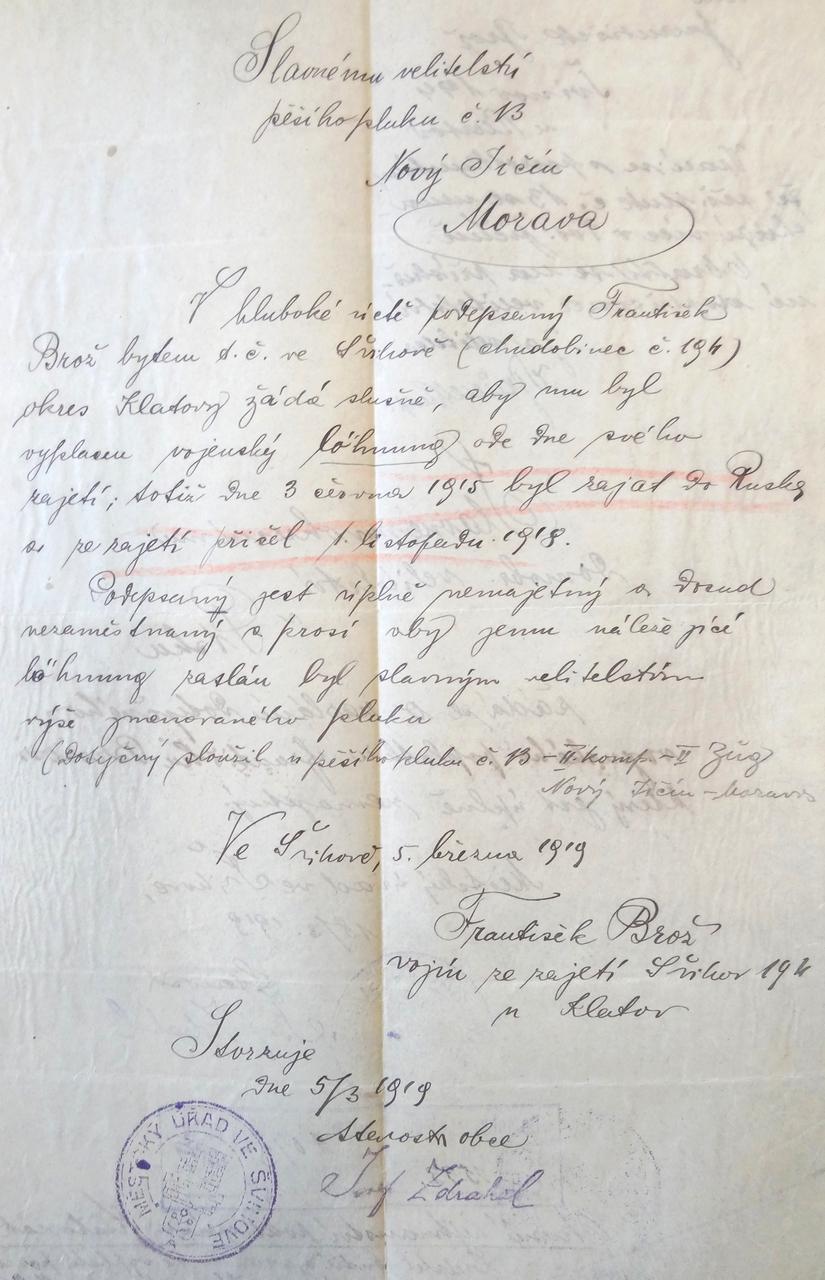 Slavnému velitelství
pěšího pluku č. 13
Nový Jičín
Morava
V hluboké úctě podepsaný František
Brož bytem t. č. ve Švihově (chudobinec č. 194)
okres Klatovy žádá slušně, aby mu byl
vyplacen vojenský löhnung ode dne svého
zajetí; totiž dne 3 června 1915 byl zajat do Ruska
a ze zajetí přišel 1. listopadu 1918.
Podepsaný jest úplně nemajetný a dosud
nezaměstnaný a prosí aby jemu náležející
löhnung zaslán byl slavným velitelstvím
výše jmenovaného pluku
(Dotyčný sloužil u pěšího pluku č. 13 – II. komp. – II Zug
Nový Jičín – Morava
Ve Švihově, 5. března 1919
František Brož
vojín ze zajetí Švihov 194
u Klatov
Stvrzuje
dne 5/3 1919
starosta obce
Zdrahal
MĚSTSKÝ ÚŘAD VE ŠVIHOVĚ